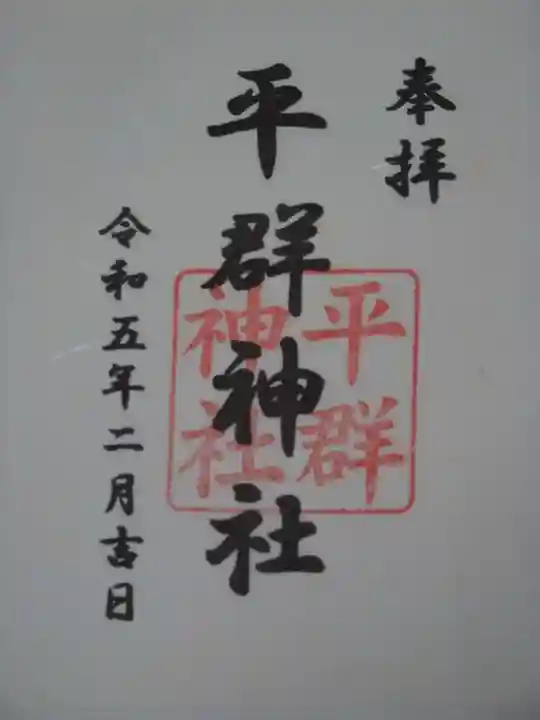 奉拝
平群神社
平群
神社
令和五年二月吉日